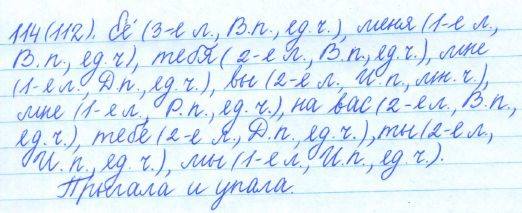 114(112). Её (3-е л., В.п., ед.ч.), меня (1-е л.,
В.п., ед.ч), тебя (2-е л., В.п., ед.ч.), мне
(1-е л., Д.п., ед.ч.), вы (2-е л., И.п., мн.ч.),
мне (1-е л., Р.п., ед.ч.), на вас (2-е л., В.п.,
ед.ч.), тебе (2-е л., Д.п., ед.ч.), ты (2-е л.,
И.п., ед.ч.), мы (1-е л., И.п., ед.ч.).
Прыгала и упала.